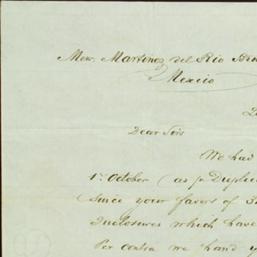 Mess. Martinez del Rio Bro
Mexico
Dear Sirs
We had
1st October (as pr Duplic
Since your favors of 3
Inclosures which have
Per contra we hand y